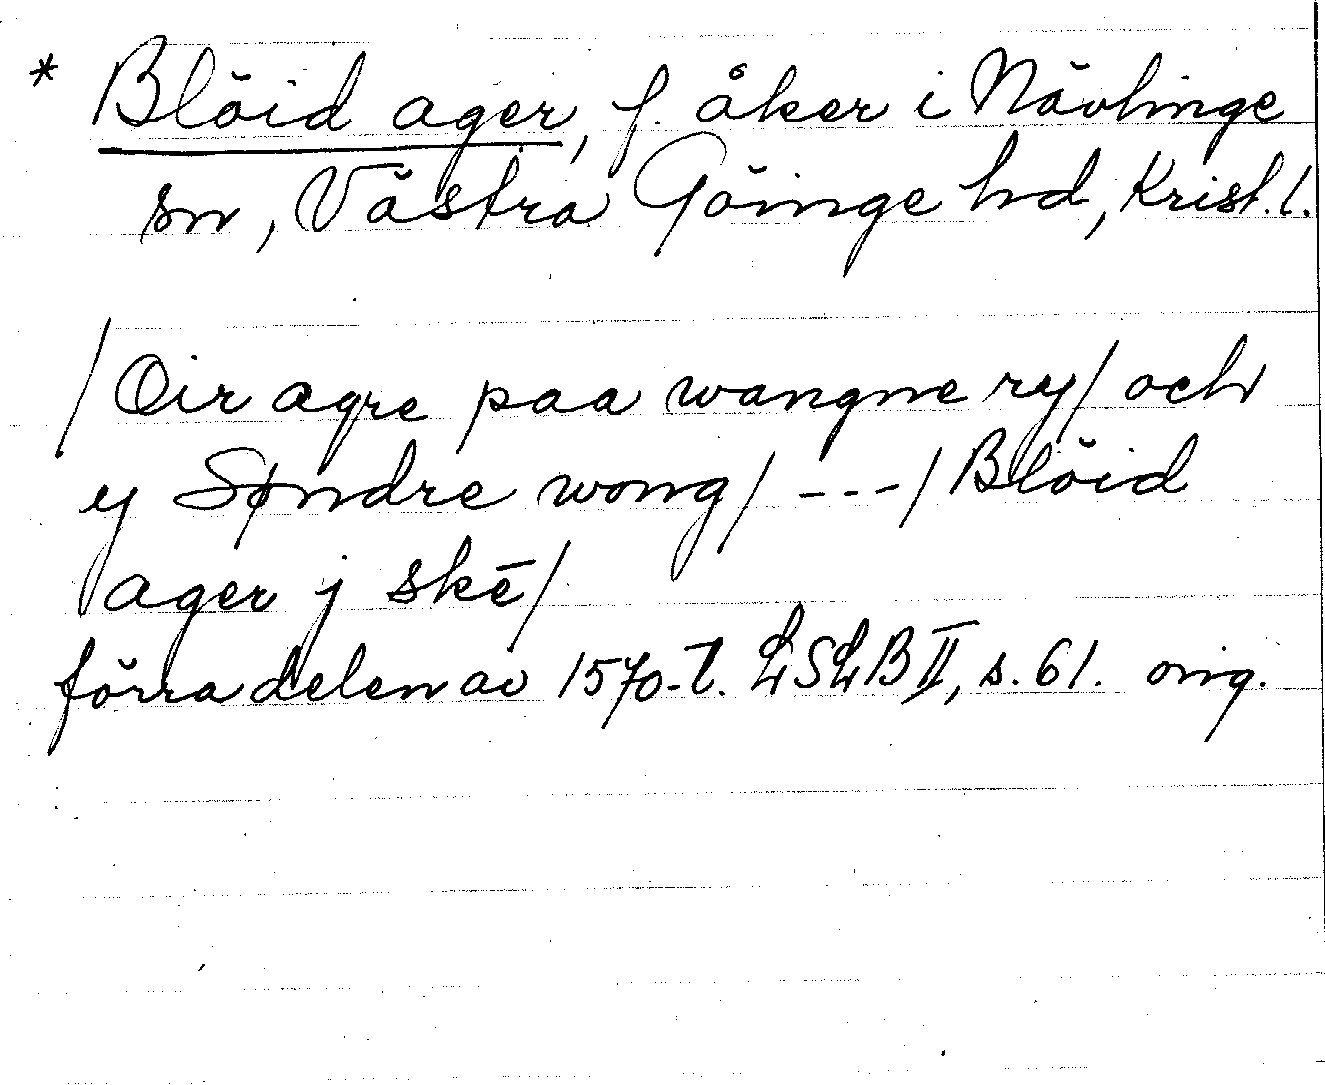 * Blöid ager, f. åker i Nävlinge
sn, Västra Göinge hd, Krist. l.
/Oir agre paa wangne ry/ och
y Søndre wong/ ---/Blöid
ager j skē/
förra delen av 1570-t. LSLB II, s. 61. orig.